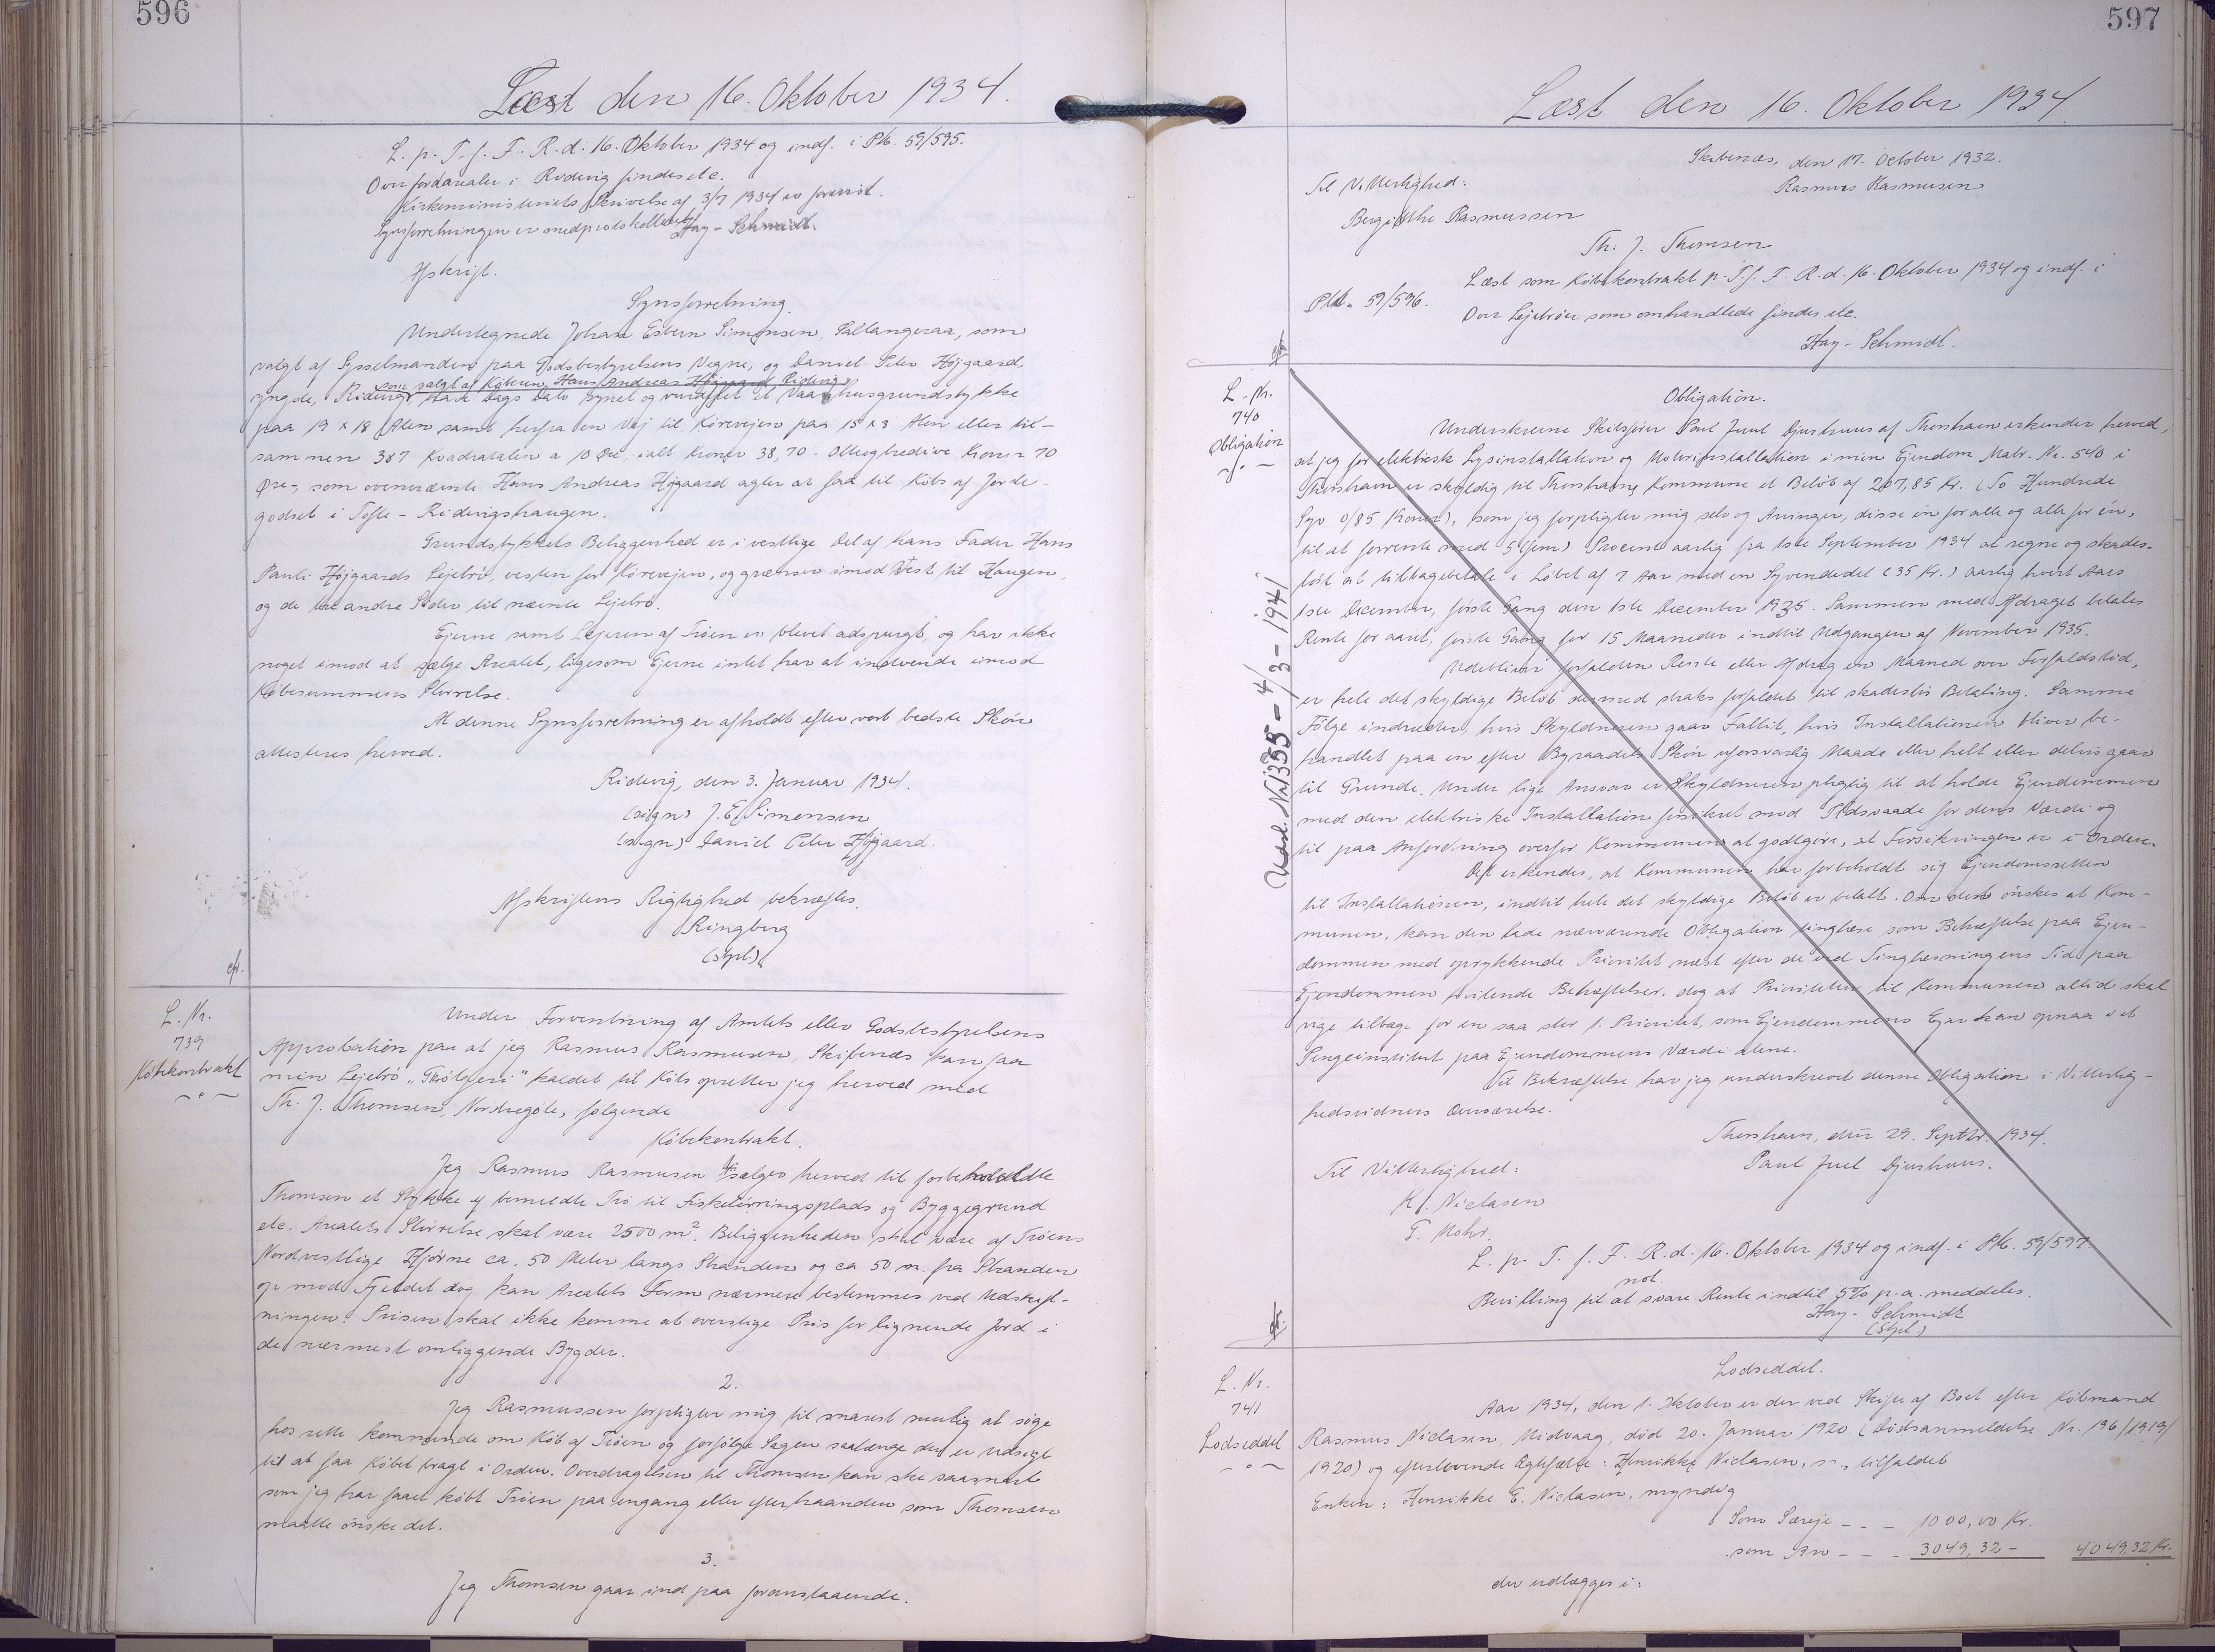 596
Læst den 16. Oktober 1934.
L. p. T. f. F. R. d. 16. Oktober 1934 og indf. i Pk. 59/595.
Overfordaraler i Rødevig findes etc.
Kirkeministeriets Skrivelse af 3/7 1934 er forevist.
Synsforretningen er medprotokolleret. Hay-Schmidt.
Afskrift.
Synsforretning.
Undertegnede Johan Esbern Simonsen, Saltangeraa, som
valgt af Sysselmanden paa Godsbestyrelsens Vegne, og Daniel Peter Højgaard,
som valgt af Køberen, Hans Andreas Højgaard, Ridevig,
yngste, Ridevig, have Dags Dato synet og vurderet et Vaaningshusgrundstykke
paa 19 x 18 Alen samt herfra en Vej til Kørevejen paa 15 x 3 Alen eller til-
sammen 387 Kvadratalen a 10 Øre, ialt Kroner 38,70 - Otteogtredive Kroner 70
Øre-, som ovennævnte Hans Andreas Højgaard agter at faa til Købs af Jorde-
godset i Tofte - Ridevigshaugen.
Grundstykkets Beliggenhed er i vestlige Del af hans Fader Hans
Pauli Højgaards Lejetrø, vesten for Kørevejen, og grænser imod Vest til Haugen,
og de tre andre Sider til nævnte Lejetrø.
Ejerne samt Lejeren af Trøen er blevet adspurgt, og har ikke
noget imod at sælge Arealet, ligesom Ejerne intet har at indvende imod
Købesummens Størrelse.
At denne Synsforretning er afholdt efter vort bedste Skøn
attesteres herved.
Ridevig, den 3. Januar 1934.
(sign) J. E. Simonsen
(sign) Daniel Peter Højgaard.
Afskriftens Rigtighed bekræftes.
Ringberg
(Stpl)
cfr.
L. Nr.
739
Købekontrakt
Under Forventning af Amtets eller Godsbestyrelsens
Approbation paa at jeg Rasmus Rasmusen, Skibenæs kan faa
min Lejetrø kaldet til Købs opretter jeg herved med
Th. J. Thomsen, Nordregøte, følgende
Købekontrakt.
Jeg Rasmus Rasmusen sælger herved til forbeholdte
Thomsen et Stykke af bemeldte Trø til Fisketørringsplads og Byggegrund
etc. Arealets Størrelse skal være 2500 m². Beliggenheden skal være af Trøens
Nordvestlige Hjørne ca. 50 Meter langs Stranden og ca 50 m. fra Stranden
op mod Fjeldet dog kan Arealets Form nærmere bestemmes ved Udskyl-
ningen. Prisen skal ikke komme at overstige Pris for lignende Jord i
de nærmest omliggende Bygder.
2.
Jeg Rasmussen forpligter mig til snarest mulig at søge
hos rette kommende om Køb af Trøen og forfølge Sagen saalænge der er udsigt
til at faa Købet bragt i Orden. Overdragelsen til Thomsen kan ske saasnart
som jeg har faaet købt Trøen paa engang eller efterhaanden som Thomsen
maatte ønske det.
3.
Jeg Thomsen gaar ind paa foranstaaende.
597
Læst den 16. Oktober 1934.
Skibenæs, den 17. October 1932.
Til Vitterlighed: Rasmus Rasmusen
Bergithe Rasmussen
Th. J. Thomsen
Læst som Købekontrakt p. T. f. F. R. d. 16. Oktober 1934 og indf. i
Pk. 59/596.
Over Lejetrøer som omhandlede findes etc.
Hay-Schmidt.
cfr.
L. Nr.
740
Obligation
Udsl. Nr. 355 - 4/3 - 1941
Obligation.
Underskrevne Skibsfører Paul Juul Djurhuus af Thorshavn erkender herved,
at jeg for elektrisk Lysinstallation og Motorinstallation i min Ejendom Matr. Nr. 540 i
Thorshavn er skyldig til Thorshavns Kommune et Beløb af 207,85 Kr. (To Hundrede
Syv 0/85 Kroner), som jeg forpligter mig selv og Arvinger, disse én for alle og alle for én,
til at forrente med 5 (fem) Procent aarlig fra 1ste September 1934 at regne og skades-
løst at tilbagebetale i Løbet af 7 Aar med en Syvendedel (35 Kr.) aarlig hvert Aars
1ste December, første Gang den 1ste December 1935. Sammen med Afdraget betales
Rente for aaret, første Gang for 15 Maaneder indtil Udgangen af November 1935.
Udebliver forfalden Rente eller Afdrag en Maaned over Forfaldstid,
er hele det skyldige Beløb dermed straks forfaldet til skadesløs Betaling. Samme
Følge indtræder, hvis Skyldneren gaar Fallit, hvis Installationen bliver be-
handlet paa en efter Byraadets Skøn uforsvarlig Maade eller helt eller delvis gaar
til Grunde. Under lige Ansvar er Skyldneren pligtig til at holde Ejendommen
med den elektriske Installation forsikret mod Ildsvaade for deres Værdi og
til paa Anfordring overfor Kommunen at godtgøre, at Forsikringen er i Orden.
Det erkendes, at Kommunen har forbeholdt sig Ejendomsretten
til Installationen, indtil hele det skyldige Beløb er betalt. Om dette ønskes at Kom-
munen, kan den lade nærværende Obligation tinglæse som Behæftelse paa Ejen-
dommen med oprykkende Prioritet næst efter de ved Tinglæsningens Tid paa
Ejendommen hvilende Behæftelser, dog at Prioriteten til Kommunen altid skal
vige tilbage for en saa stor 1. Prioritet, som Ejendommens Ejer kan opnaa i et
Pengeinstitut paa Ejendommens Værdi alene.
Til Bekræftelse har jeg underskrevet denne Obligation i Vitterlig-
hedsvidners Overværelse.
Thorshavn, den 29. Septbr. 1934.
Til Vitterlighed: Paul Juel Djurhuus.
K. Niclasen
T. Mohr.
L. p. T. f. F. R. d. 16. Oktober 1934 og indf. i Pk. 59/597.
not.
Bevilling til at svare Rente indtil 5% p.a. meddeles.
Hay-Schmidt
(Stpl)
cfr.
L. Nr.
741
Lodseddel
Lodseddel.
Aar 1934, den 1. Oktober er der ved Skifte af Boet efter Købmand
Rasmus Niclasen, Midvaag, død 20. Januar 1920 (Dødsanmeldelse Nr. 196/1919/
1920) og efterlevende Ægtefælle: Henrikke Niclasen, tilfaldet
Enken: Henrikke E. Niclasen, myndig
Som Særeje - - - 1000,00 Kr.
som Arv - - - 3049,32 - 4049,32 Kr.
der udlægges i: